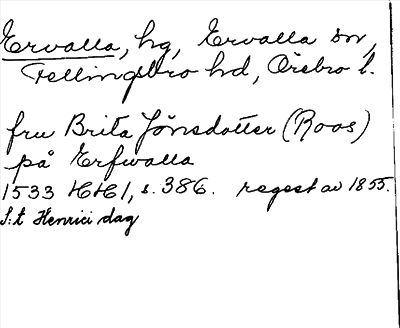 Ervalla, hg, Ervalla sn,
Fellingsbro hd, Örebro l.
fru Brita Jönsdotter (Roos)
på Erfwalla
1533 HH1, s. 386. regest av 1855.
S:t Henrici dag